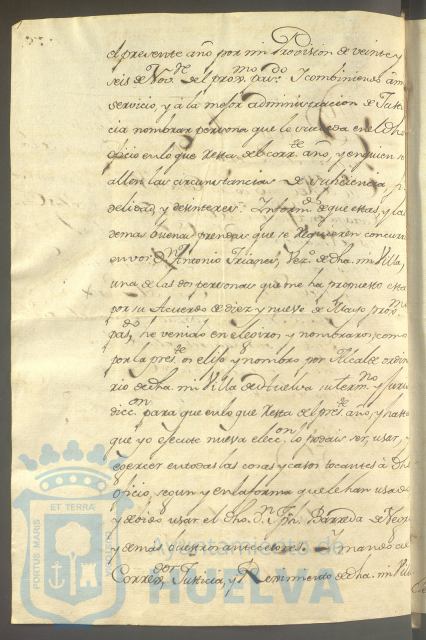 el presente año por mi Provision de veinte y
seis de Nov.re del prox.mo pas.do Y combiniendo à mi
servicio, y à la mejor administracion de Justi
cia nombrar persona que lo sueceda en el dho
oficio en lo que resta de el corr.te año, y en quien se
allen las circunstancias de suficiencia, fi
delidad, y desinteres: Inform.do de que estas, y las
demas buenas prendas que se requieren concurren
en vos D.n Antonio Trianes, Vez.o de dha. mi Villa,
una de las dos personas que me ha propuesto esta
por su Acuerdo de diez y nueve de Mayo prox.mo
pas.do, he venido en elegiros, y nombraros, como
por la pres.te os elijo y nombro por Alcalde ordina
rio de dha. mi Villa de Huelva su term.no y Juris
dicc.on para que en lo que resta del pres.te año, y hasta
que yo ejecute nueva elecc.on lo podais ser, usar, y
exercer en todas las cosas y casos tocantes à dho
oficio, segun y en la forma que le han usado
y debido usar el dho. D.n Barreda
y demas vuestros antecesores. Y mando al
Correg.dor Justicia, y Regimiento de dha. mi Villa
PORTUS MARIS ET TERRAE CUSTODIA
Ayuntamiento de
HUELVA